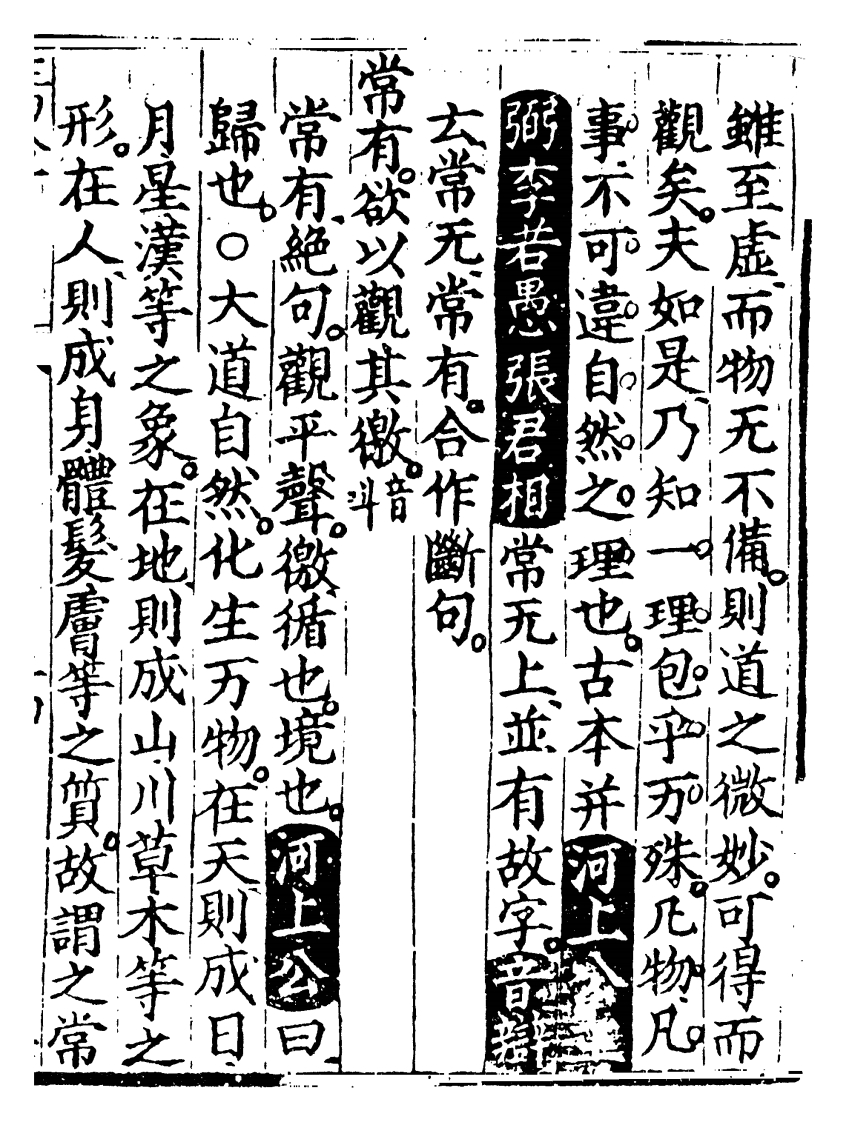 雖至虛而物无不備則道之微妙可得而
觀矣夫如是乃知一理包乎万殊凡物凡
事不可違自然之理也古本并河上公
弼李若愚張君相常无上並有故字音辯
云常无常有合作斷句
常有欲以觀其徼音斗
常有絕句觀平聲徼循也境也河上公曰
歸也○大道自然化生万物在天則成日
月星漢等之象在地則成山川草木等之
形在人則成身體髮膚等之質故謂之常